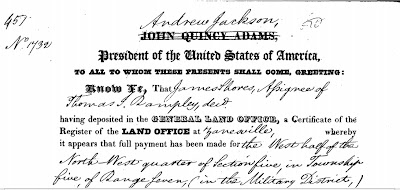 457
Andrew Jackson,
No 1732
JOHN QUINCY ADAMS,
President of the United States of America,
TO ALL TO WHOM THESE PRESENTS SHALL COME, GREETING:
Know Ye, That James Shores, Assignee of
Thomas J. Dampley, decd.
having deposited in the GENERAL LAND OFFICE, a Certificate of the
Register of the LAND OFFICE at Zanesville, whereby
it appears that full payment has been made for the West half of the
North West quarter of Section five, in Township
five, of Range Seven, (in the Military District,)